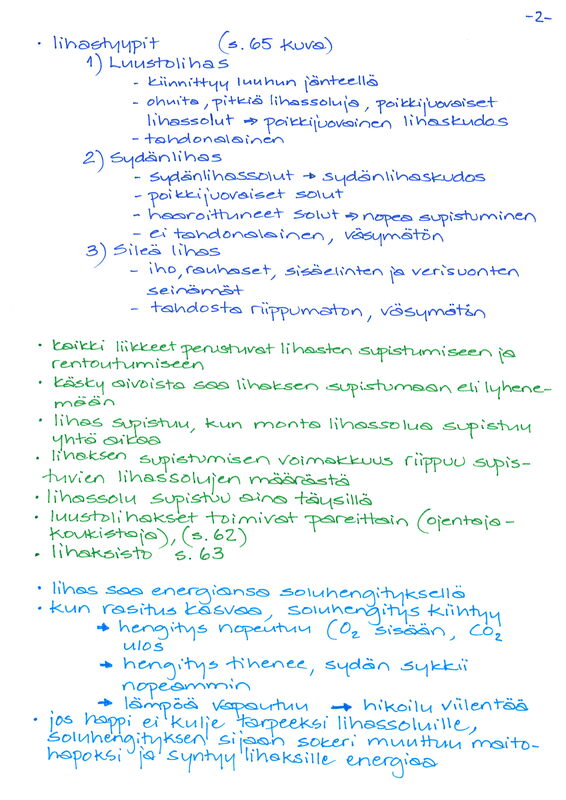 -2-
• lihastyypit (s. 65 kuva)
1) Luustolihas
- kiinnittyy luuhun jänteellä
- ohuita, pitkiä lihassoluja, poikkijuovaiset
lihassolut → poikkijuovainen lihaskudos
- tahdonalainen
2) Sydänlihas
- sydänlihassolut → sydänlihaskudos
- poikkijuovaiset solut
- haaroittuneet solut → nopea supistuminen
- ei tahdonalainen, väsymätön
3) Sileä lihas
- iho, rauhaset, sisäelinten ja verisuonten
seinämät
- tahdosta riippumaton, väsymätön
• kaikki liikkeet perustuvat lihasten supistumiseen ja
rentoutumiseen
• käsky aivoista saa lihaksen supistumaan eli lyhene-
mään
• lihas supistuu, kun monta lihassolua supistuu
yhtä aikaa
• lihaksen supistumisen voimakkuus riippuu supis-
tuvien lihassolujen määrästä
• lihassolu supistuu aina täysillä
• luustolihakset toimivat pareittain (ojentaja-
koukistaja), (s. 62)
• lihaksisto s. 63
• lihas saa energiansa soluhengityksellä
• kun rasitus kasvaa, soluhengitys kiihtyy
→ hengitys nopeutuu (O₂ sisään, CO₂
ulos
→ hengitys tihenee, sydän sykkii
nopeammin
→ lämpöä vapautuu → hikoilu viilentää
• jos happi ei kulje tarpeeksi lihassoluille,
soluhengityksen sijaan sokeri muuttuu maito-
hapoksi ja syntyy lihaksille energiaa